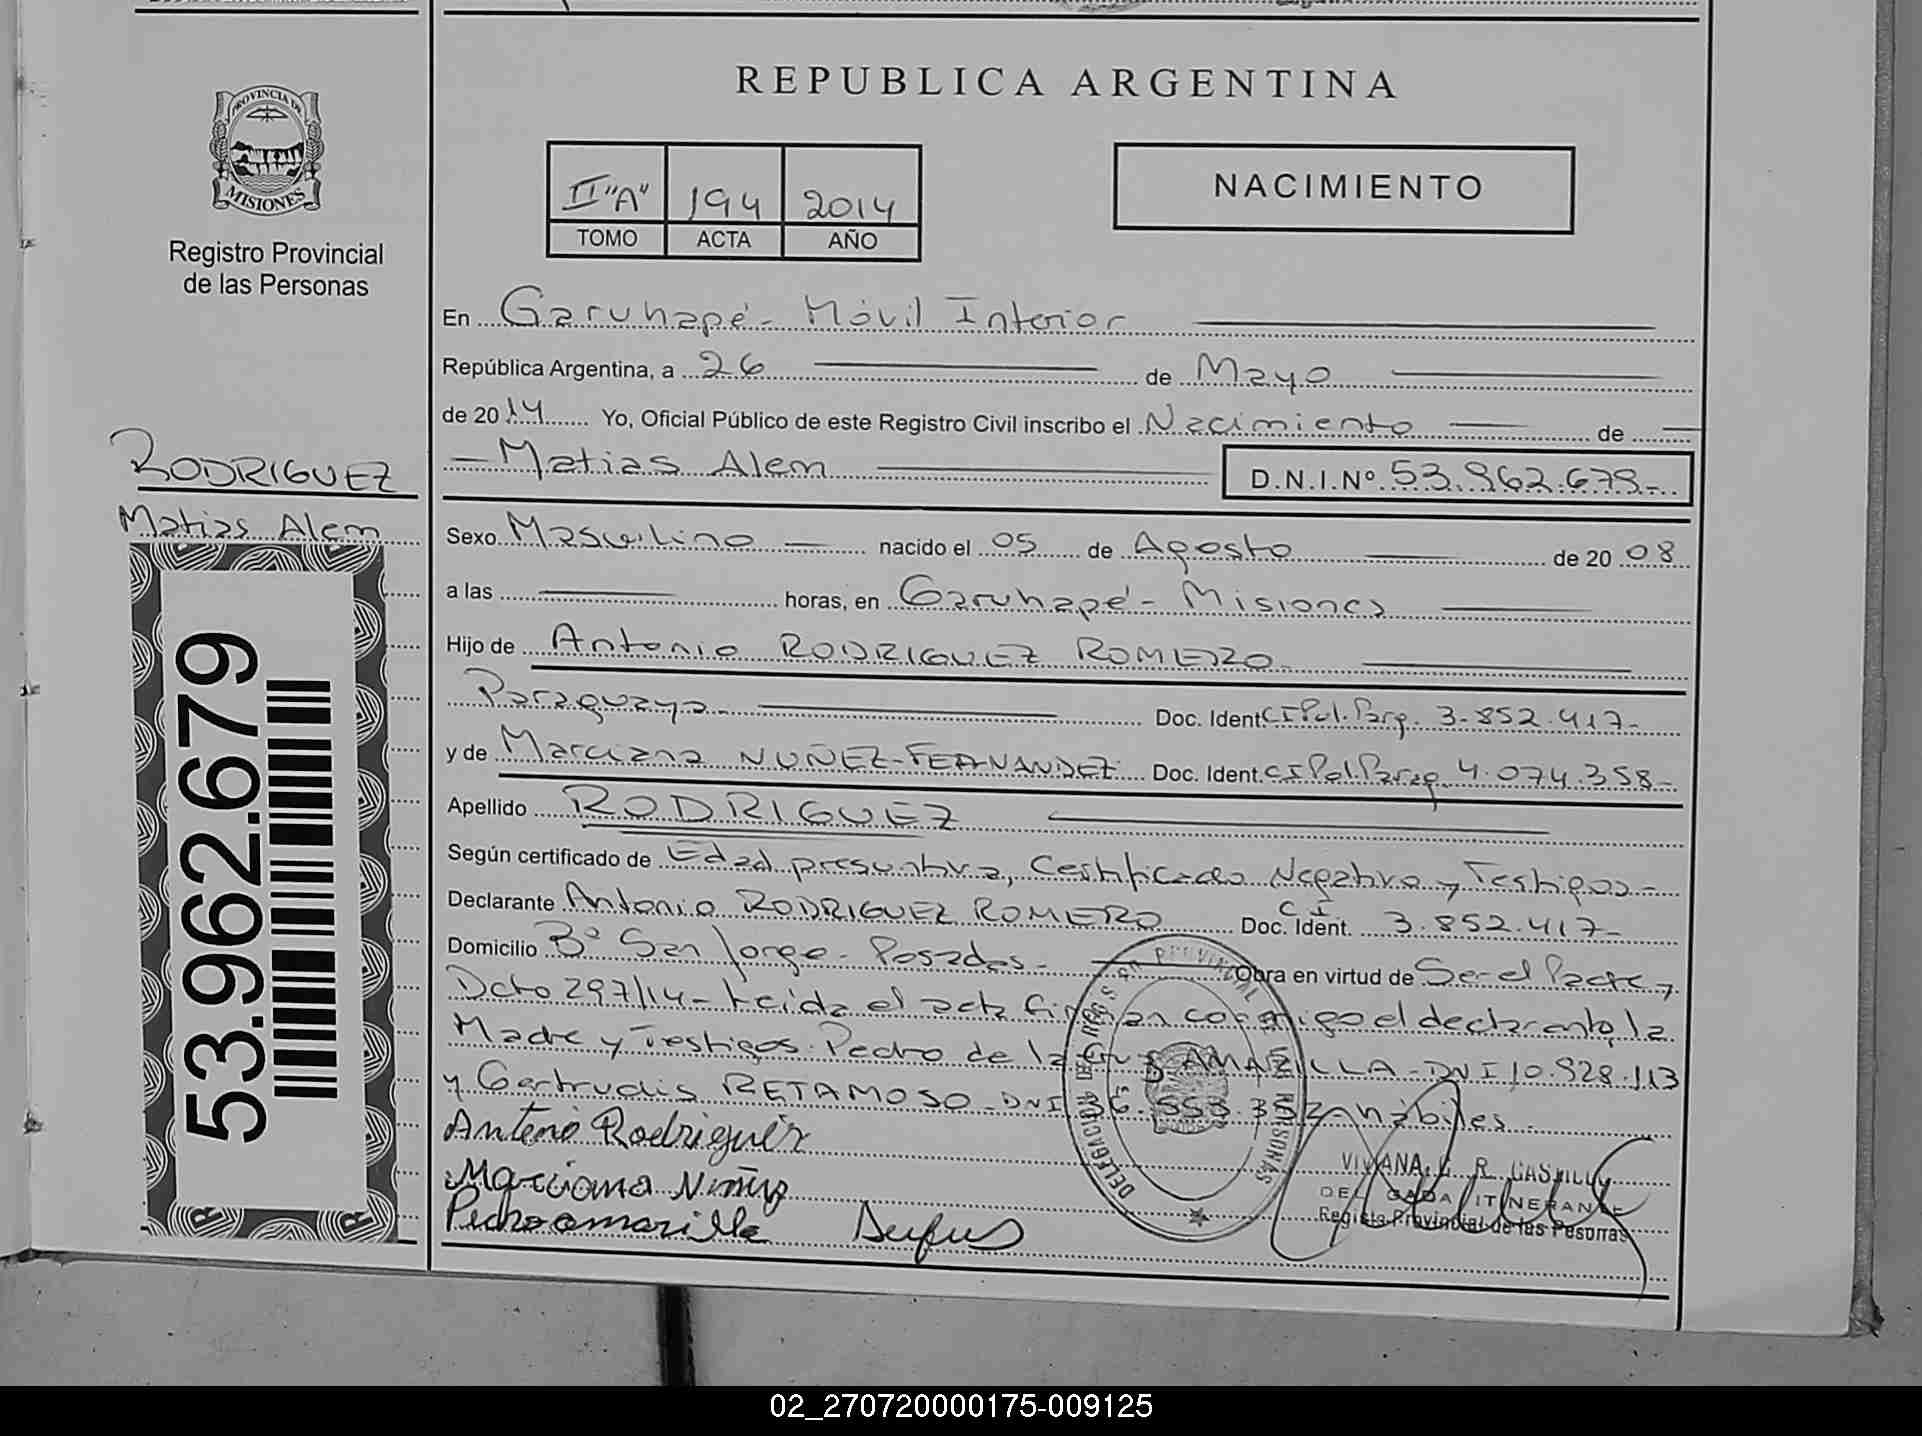 REPUBLICA ARGENTINA
PROVINCIA DE
MISIONES
Registro Provincial
de las Personas
II "A" 194 2014
TOMO ACTA AÑO
NACIMIENTO
En Garuhapé - Móvil Interior
República Argentina, a 26 de Mayo
de 2014 Yo, Oficial Público de este Registro Civil inscribo el Nacimiento de
Matias Alem D.N.I.Nº 53.962.679-
RODRIGUEZ
Matias Alem
53.962.679
Sexo Masculino nacido el 05 de Agosto de 2008
a las horas, en Garuhapé - Misiones
Hijo de Antonio RODRIGUEZ ROMERO
Paraguayo Doc. Ident CI Pol. Parg. 3.852.417-
y de Marciana NUÑEZ-FERNANDEZ Doc. Ident. CI Pol. Parag. 4.074.358-
Apellido RODRIGUEZ
Según certificado de Edad presuntiva, Certificado Negativo y Testigos-
Declarante Antonio RODRIGUEZ ROMERO Doc. Ident. CI 3.852.417-
Domicilio Bº San Jorge - Posadas - Obra en virtud de Ser el Padre y
Dcto 297/14 - Leida el acta firman conmigo el declarante, la
Madre y Testigos: Pedro de la Cruz AMARILLA - DNI 10.928.113
y Gertrudis RETAMOSO - DNI hábiles.
Antonio Rodriguez
Marciana Nuñez
Pedro amarilla
DELEGACION
PROVINCIAL
PERSONAS
VIVIANA R. CASTILLO
DELEGADA ITINERANTE
Registro Provincial de las Personas
02_270720000175-009125